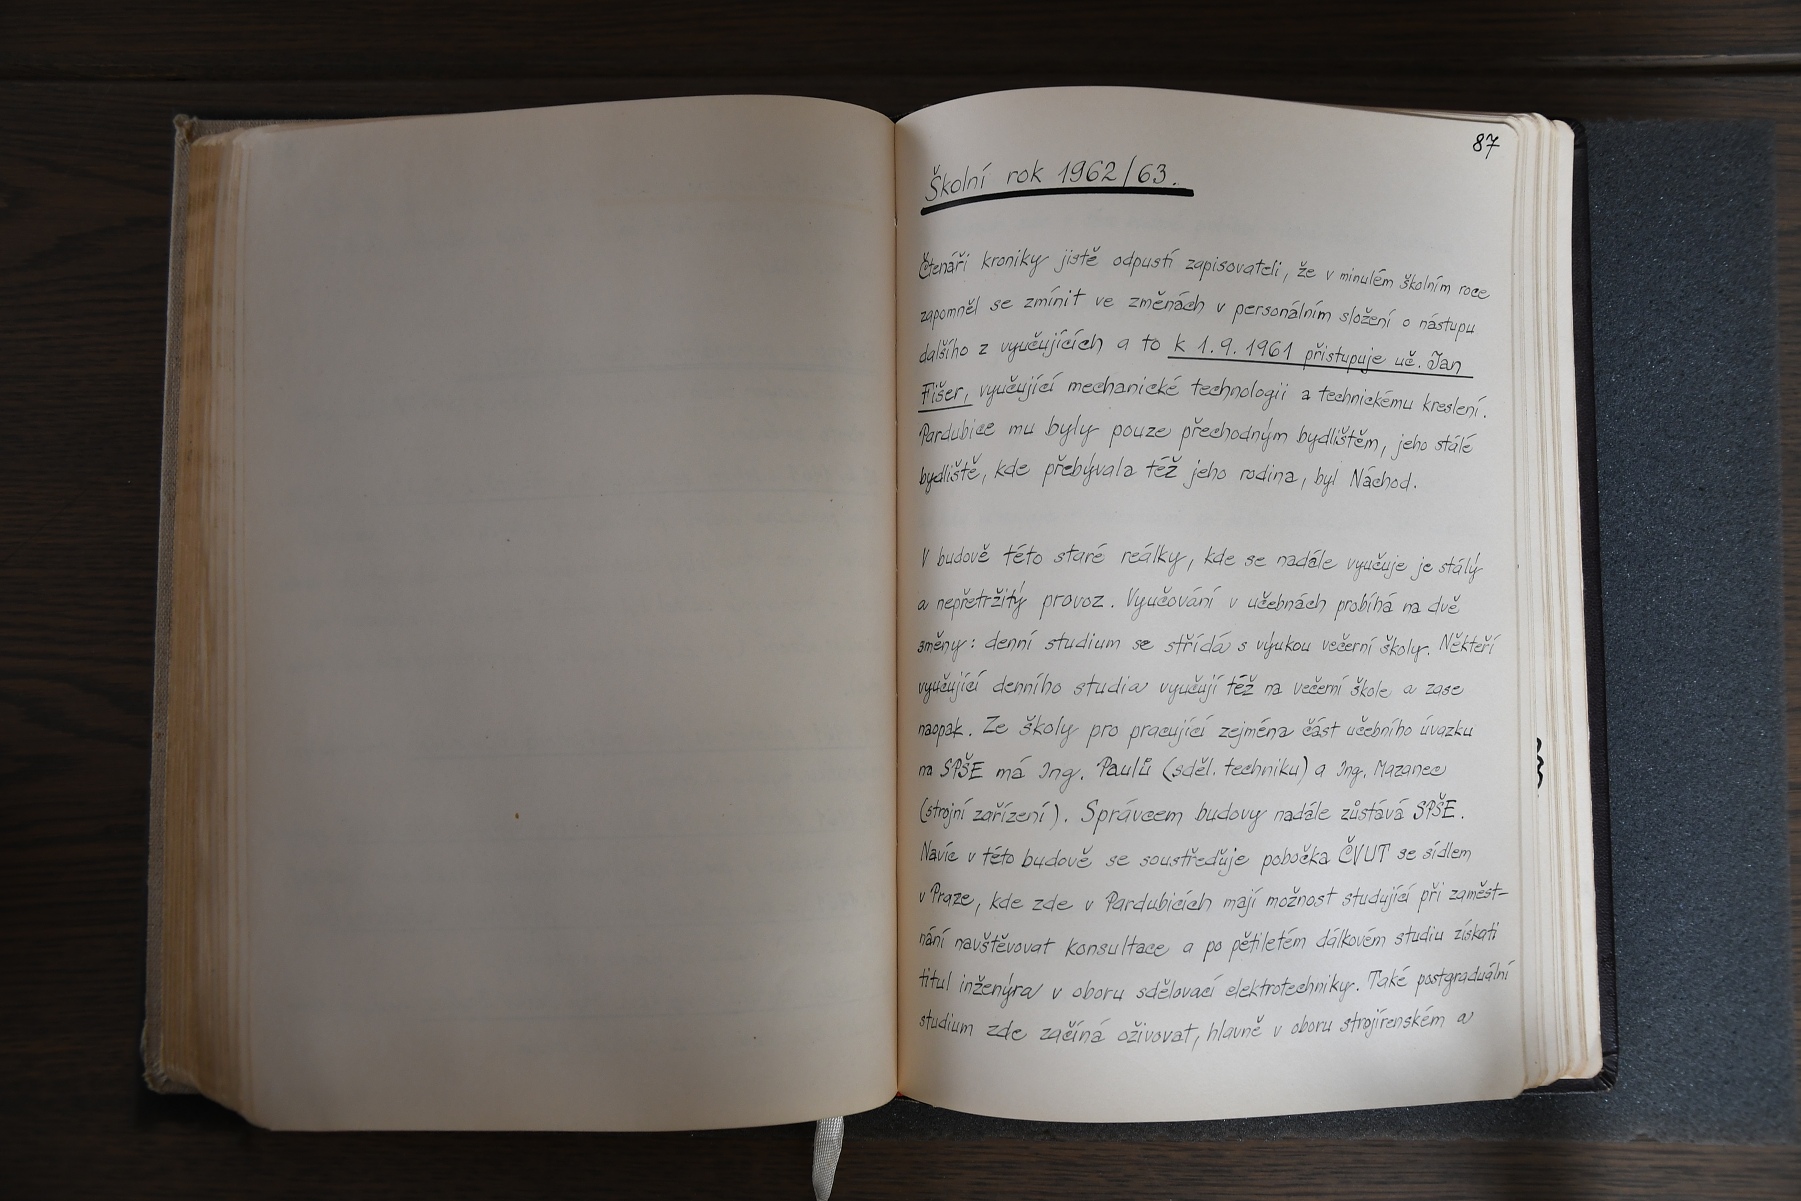 87
Školní rok 1962/63.
Čtenáři kroniky jistě odpustí zapisovateli, že v minulém školním roce
zapomněl se zmínit ve změnách v personálním složení o nástupu
dalšího z vyučujících a to k 1.9.1961 přistupuje uč. Jan
Fišer, vyučující mechanické technologii a technickému kreslení.
Pardubice mu byly pouze přechodným bydlištěm, jeho stálé
bydliště, kde přebývala též jeho rodina, byl Náchod.
V budově této staré reálky, kde se nadále vyučuje je stálý
a nepřetržitý provoz. Vyučování v učebnách probíhá na dvě
směny: denní studium se střídá s výukou večerní školy. Někteří
vyučující denního studia vyučují též na večerní škole a zase
naopak. Ze školy pro pracující zejména část učebního úvazku
na SPŠE má Ing. Paulů (sděl. techniku) a Ing. Mazanec
(strojní zařízení). Správcem budovy nadále zůstává SPŠE.
Navíc v této budově se soustřeďuje pobočka ČVUT se sídlem
v Praze, kde zde v Pardubicích mají možnost studující při zaměst-
nání navštěvovat konsultace a po pětiletém dálkovém studiu získati
titul inženýra v oboru sdělovací elektrotechniky. Také postgraduální
studium zde začíná oživovat, hlavně v oboru strojírenském a